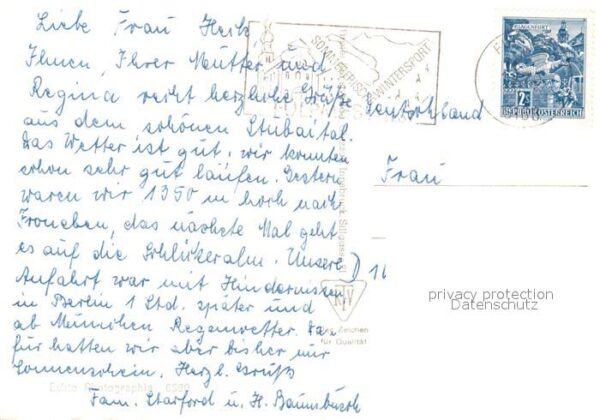 Liebe Frau Heib,
Ihnen, Ihrer Mutter und
Regina recht herzliche Grüße
aus dem schönen Stubaital.
Das Wetter ist gut, wir konnten
schon sehr gut laufen. Gestern
waren wir 1350 m hoch nach
Froneben, das nächste Mal geht
es auf die Schlickeralm. Unsere
Anfahrt war mit Hindernissen
in Berlin 1 Std. später und
ab München Regenwetter. Da-
für hatten wir aber bisher nur
Sonnenschein. Herzl. Gruß
Fam. Starford u. H. Baumbusch
Deutschland
Frau
16
SOMMERFRISCHE WINTERSPORT
KLAGENFURT
2S
REPUBLIK ÖSTERREICH
Innsbruck, Sillgasse
Das Zeichen
für Qualität
Echte Photographie
privacy protection
Datenschutz